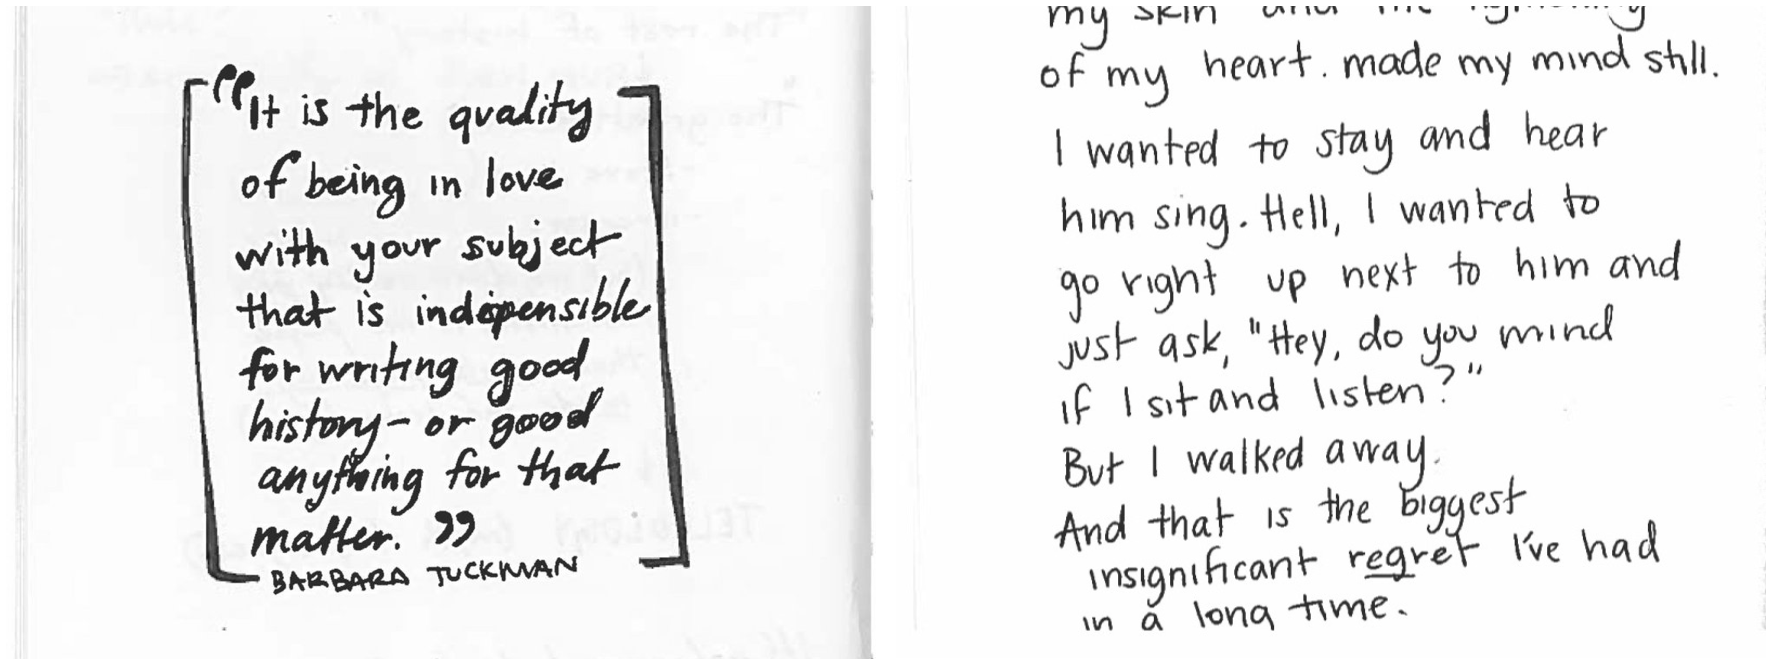 "It is the quality
of being in love
with your subject
that is indispensible
for writing good
history - or good
anything for that
matter."
BARBARA TUCKMAN
my skin and the
of my heart. made my mind still.
I wanted to stay and hear
him sing. Hell, I wanted to
go right up next to him and
just ask, "Hey, do you mind
if I sit and listen?"
But I walked away.
And that is the biggest
insignificant regret I've had
in a long time.